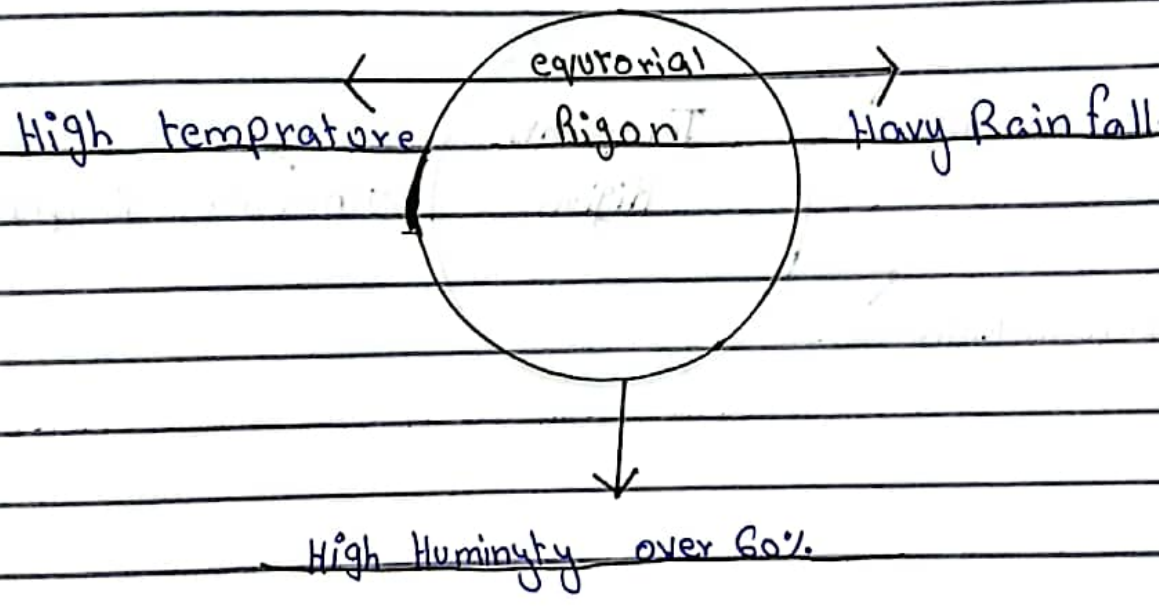 equtorial
High temprature Rigon Havy Rainfall
High Huminyty over 60%